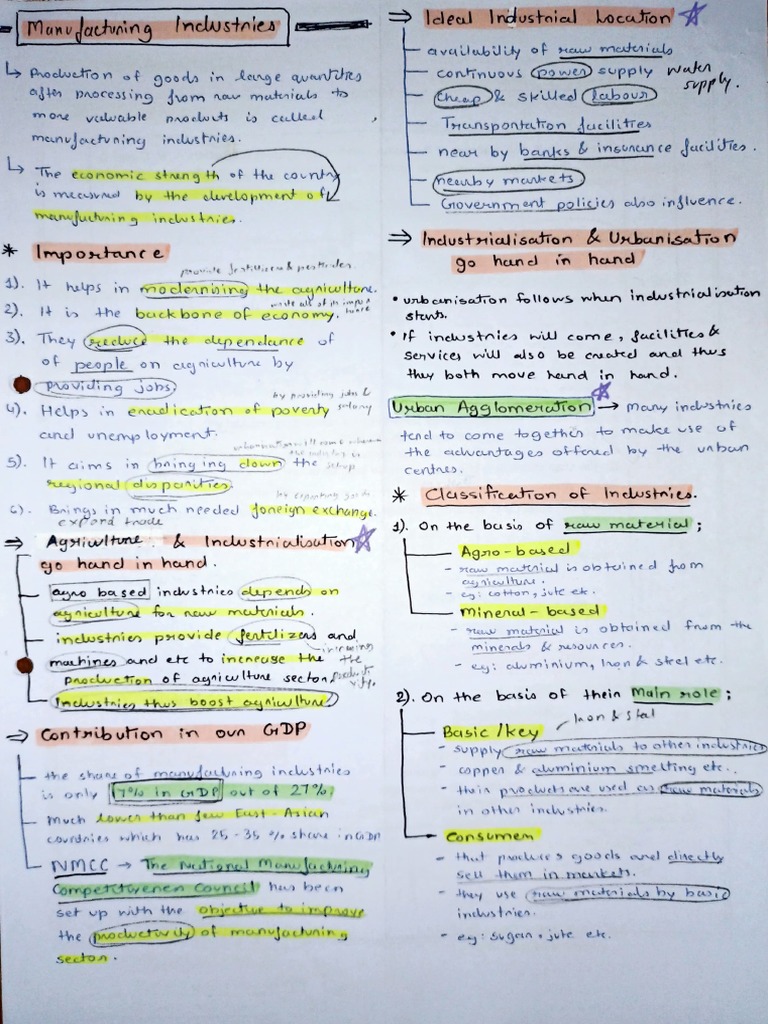 Manufacturing Industries
↳ Production of goods in large quantities
after processing from raw materials to
more valuable products is called
manufacturing industries.
↳ The economic strength of the country
is measured by the development of
manufacturing industries.
* Importance
provide fertilizers & pesticides
1). It helps in modernising the agriculture.
2). It is the backbone of economy.
3). They reduce the dependance of
of people on agriculture by
providing jobs
by providing jobs &
salary
4). Helps in eradication of poverty
and unemployment.
5). It aims in bringing down the
regional disparities.
by exporting goods
6). Brings in much needed foreign exchange.
export trade
⇒ Agriculture & Industrialisation
go hand in hand.
agro based industries depends on
agriculture for raw materials.
industries provide fertilizers and
machines and etc to increase the
production of agriculture sector.
increasing
the
productivity.
Industries thus boost agriculture
⇒ Contribution in our GDP
the share of manufacturing industries
is only 17% in GDP out of 27%.
much lower than few East-Asian
countries which has 25-35% share in GDP
NMCC → The National Manufacturing
Competitiveness Council has been
set up with the objective to improve
the productivity of manufacturing
sector.
⇒ Ideal Industrial Location
availability of raw materials
continuous power supply water
supply.
cheap & skilled labour
Transportation facilities
near by banks & insurance facilities.
nearby markets
Government policies also influence.
⇒ Industrialisation & Urbanisation
go hand in hand
• urbanisation follows when industrialisation
starts.
• If industries will come, facilities &
services will also be created and thus
they both move hand in hand.
Urban Agglomeration → Many industries
tend to come together to make use of
the advantages offered by the urban
centres.
* Classification of Industries.
1). On the basis of raw material;
Agro-based
- raw material is obtained from
agriculture.
- eg: cotton, jute etc.
Mineral-based
- raw material is obtained from the
minerals & resources.
- eg: aluminium, Iron & steel etc.
2). On the basis of their Main role;
Basic/key
Iron & steel
- supply raw materials to other industries
- copper & aluminium smelting etc.
- their products are used as raw materials
in other industries.
Consumer
- that produces goods and directly
sell them in markets.
- they use raw materials by basic
industries.
- eg: sugar, jute etc.